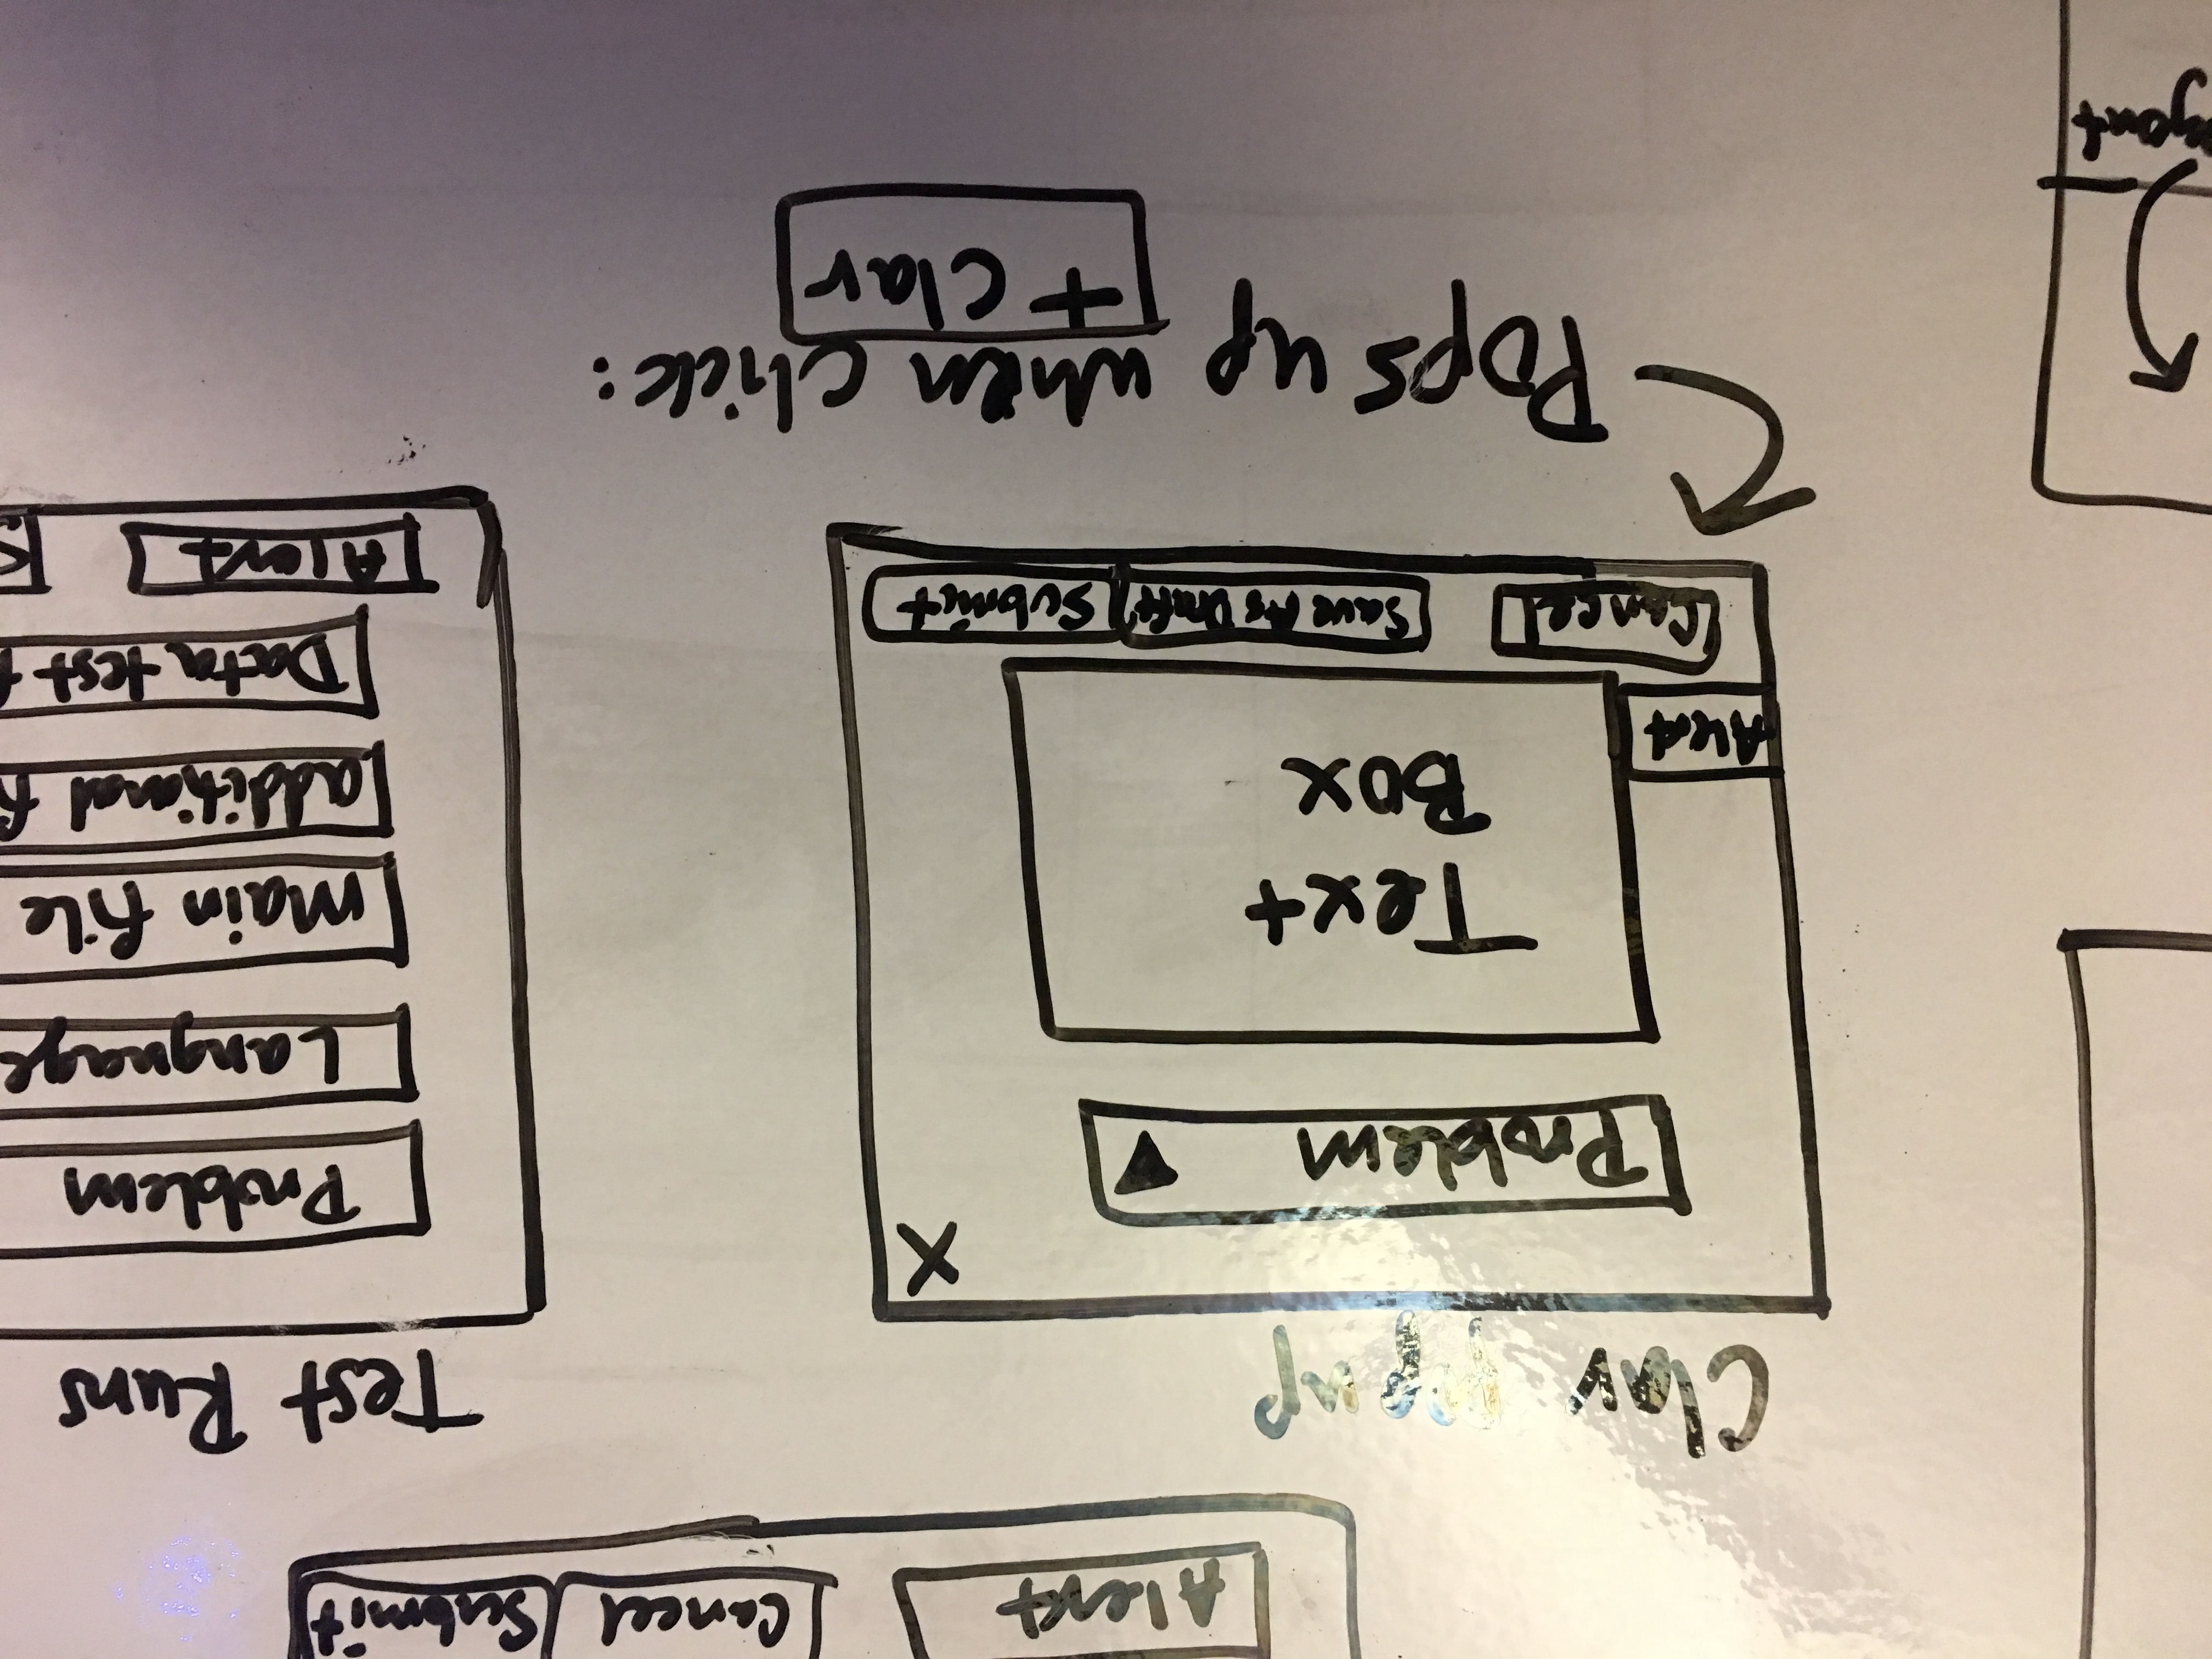 Alert Cancel Submit
Clar popup
X
Problem
Text
Box
Alert
Cancel Save As Draft Submit
Pops up when click:
+ Clar
Test Runs
Problem
Language
Main file
additional
Data test
Alert